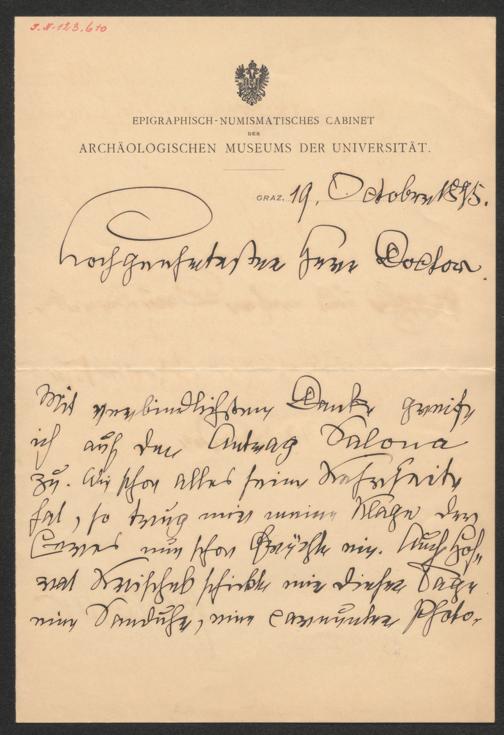 J.N. 123.610
EPIGRAPHISCH-NUMISMATISCHES CABINET
DES
ARCHÄOLOGISCHEN MUSEUMS DER UNIVERSITÄT.
GRAZ, 19. October 1895.
Hochgeehrtester Herr Doctor.
Mit verbindlichstem Danke greife
ich auf den Antrag Salona
zu. Wie schon alles seine Kehrseite
hat, so trug mir meine Klage der
Ceres nun schon Früchte ein. Auch Hof-
rat schickte mir dieser Tage
eine Sanduhr, eine Photo-